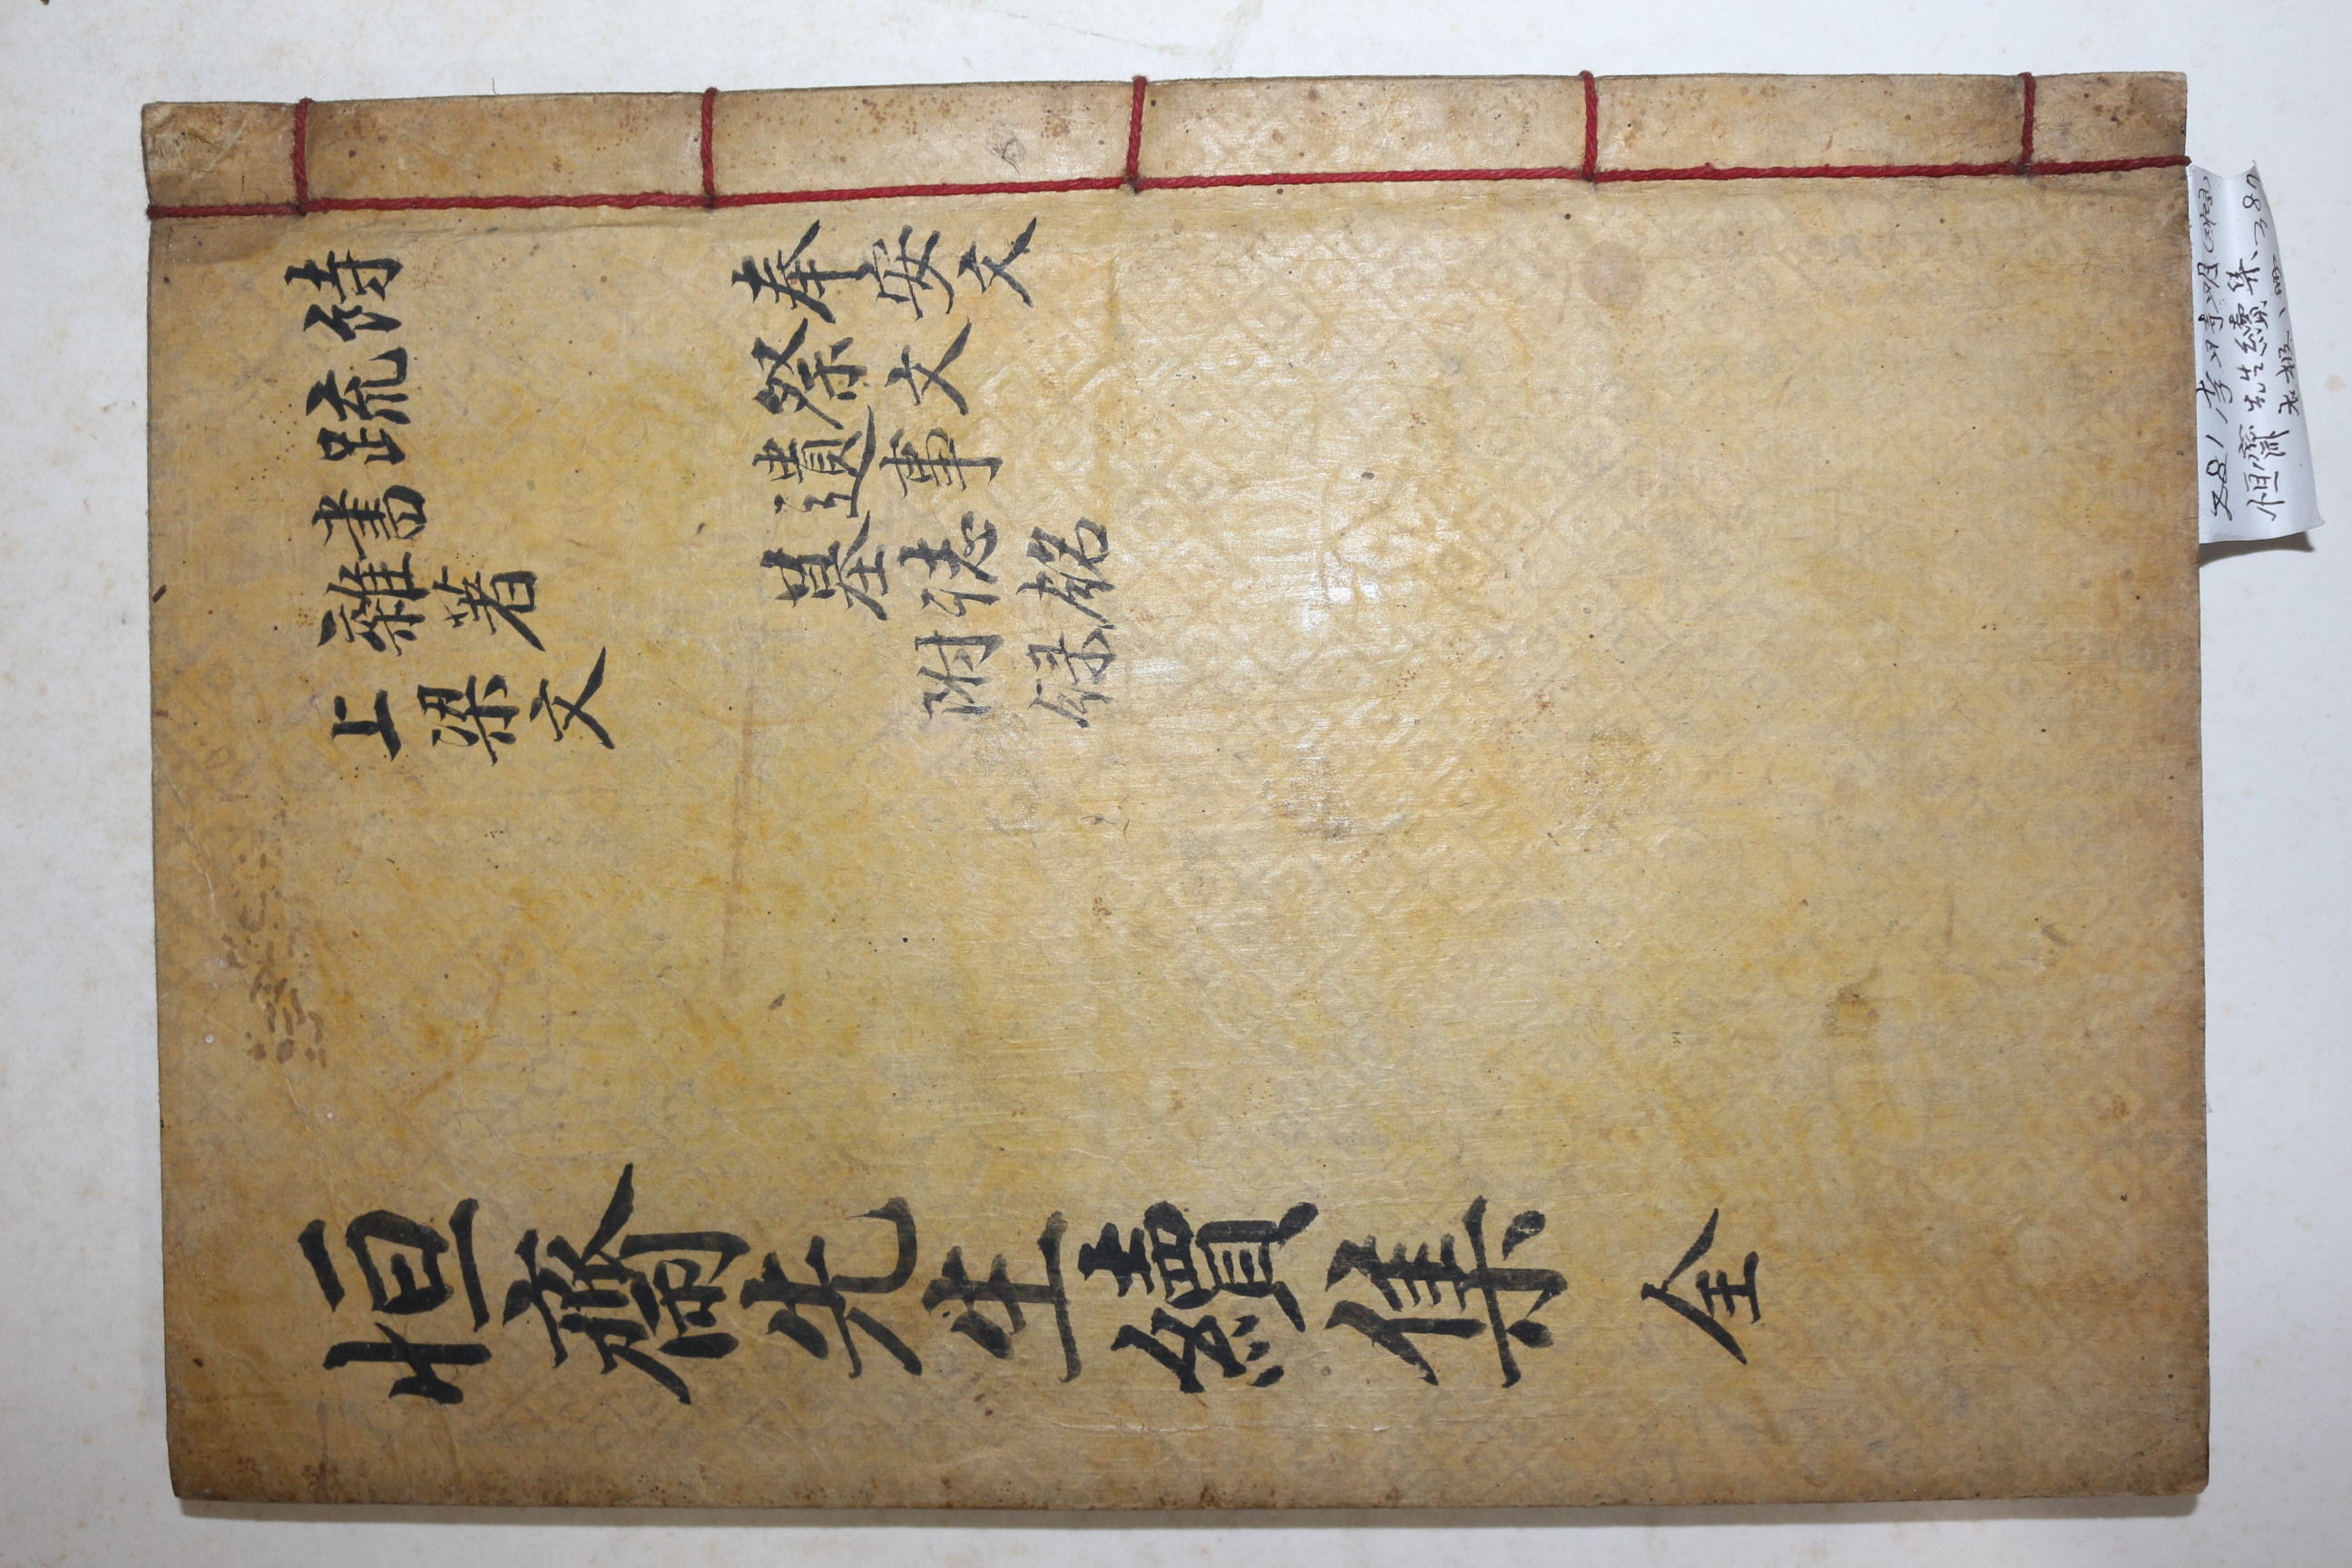 詩
疏
書
雜著
上梁文
奉安文
祭文
遺事
墓誌銘
附錄
恒齋先生續集 全
281 李時明
恒齋先生續集 387
木板 1冊